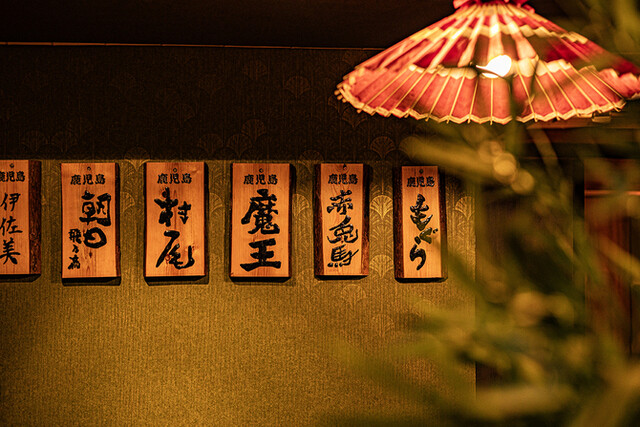 鹿児島
伊佐美
鹿児島
朝日
飛乃流
鹿児島
村尾
鹿児島
魔王
鹿児島
赤兎馬
鹿児島
もぐら